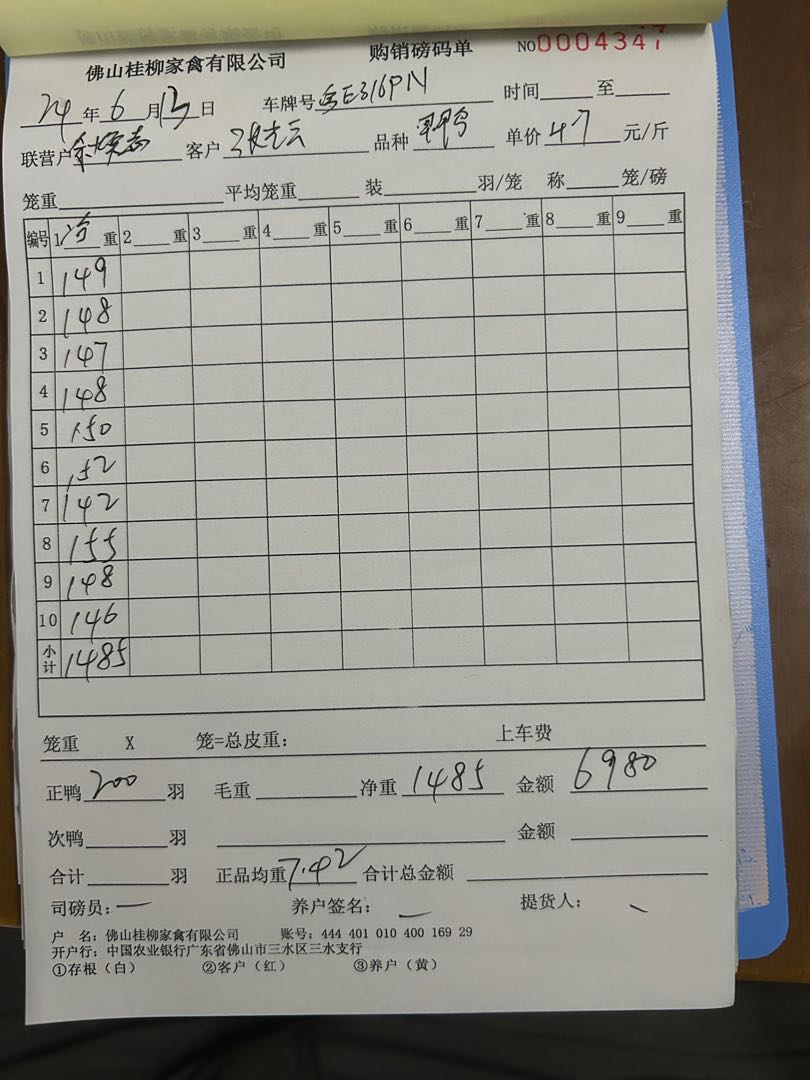 佛山桂柳家禽有限公司 购销磅码单 NO0004347
24年6月13日 车牌号粤E316PN 时间____至____
联营户 客户 品种 单价4.7元/斤
笼重____平均笼重____装____羽/笼 称____笼/磅
编号 1净重 2____重 3____重 4____重 5____重 6____重 7____重 8____重 9____重
1 149
2 148
3 147
4 148
5 150
6 152
7 142
8 155
9 148
10 146
小计 1485
笼重 X 笼=总皮重: 上车费
正鸭200羽 毛重____ 净重1485 金额6980
次鸭____羽 ____ 金额____
合计____羽 正品均重7.42 合计总金额____
司磅员: 养户签名: 提货人:
户 名: 佛山桂柳家禽有限公司 账号: 444 401 010 400 169 29
开户行: 中国农业银行广东省佛山市三水区三水支行
①存根（白） ②客户（红） ③养户（黄）